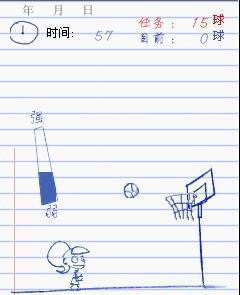 年 月 日
任务: 15 球
时间: 57 目前: 0 球
强
弱